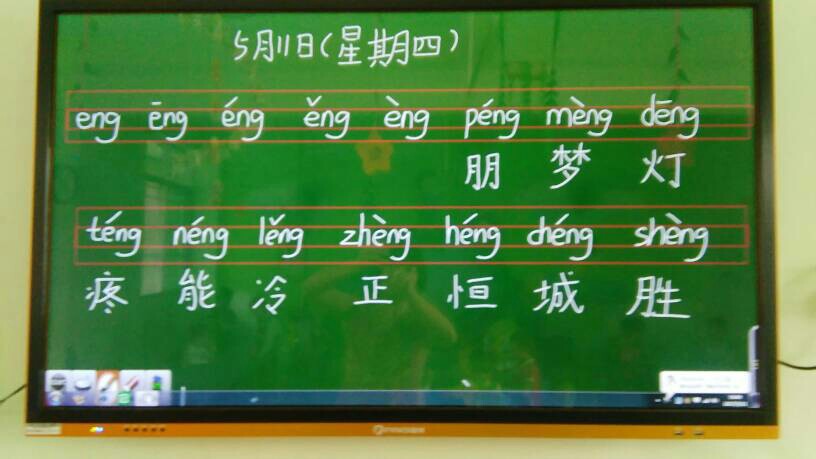 5月11日(星期四)
eng ēng éng ěng èng péng mèng dēng
朋 梦 灯
téng néng lěng zhèng héng chéng shèng
疼 能 冷 正 恒 城 胜